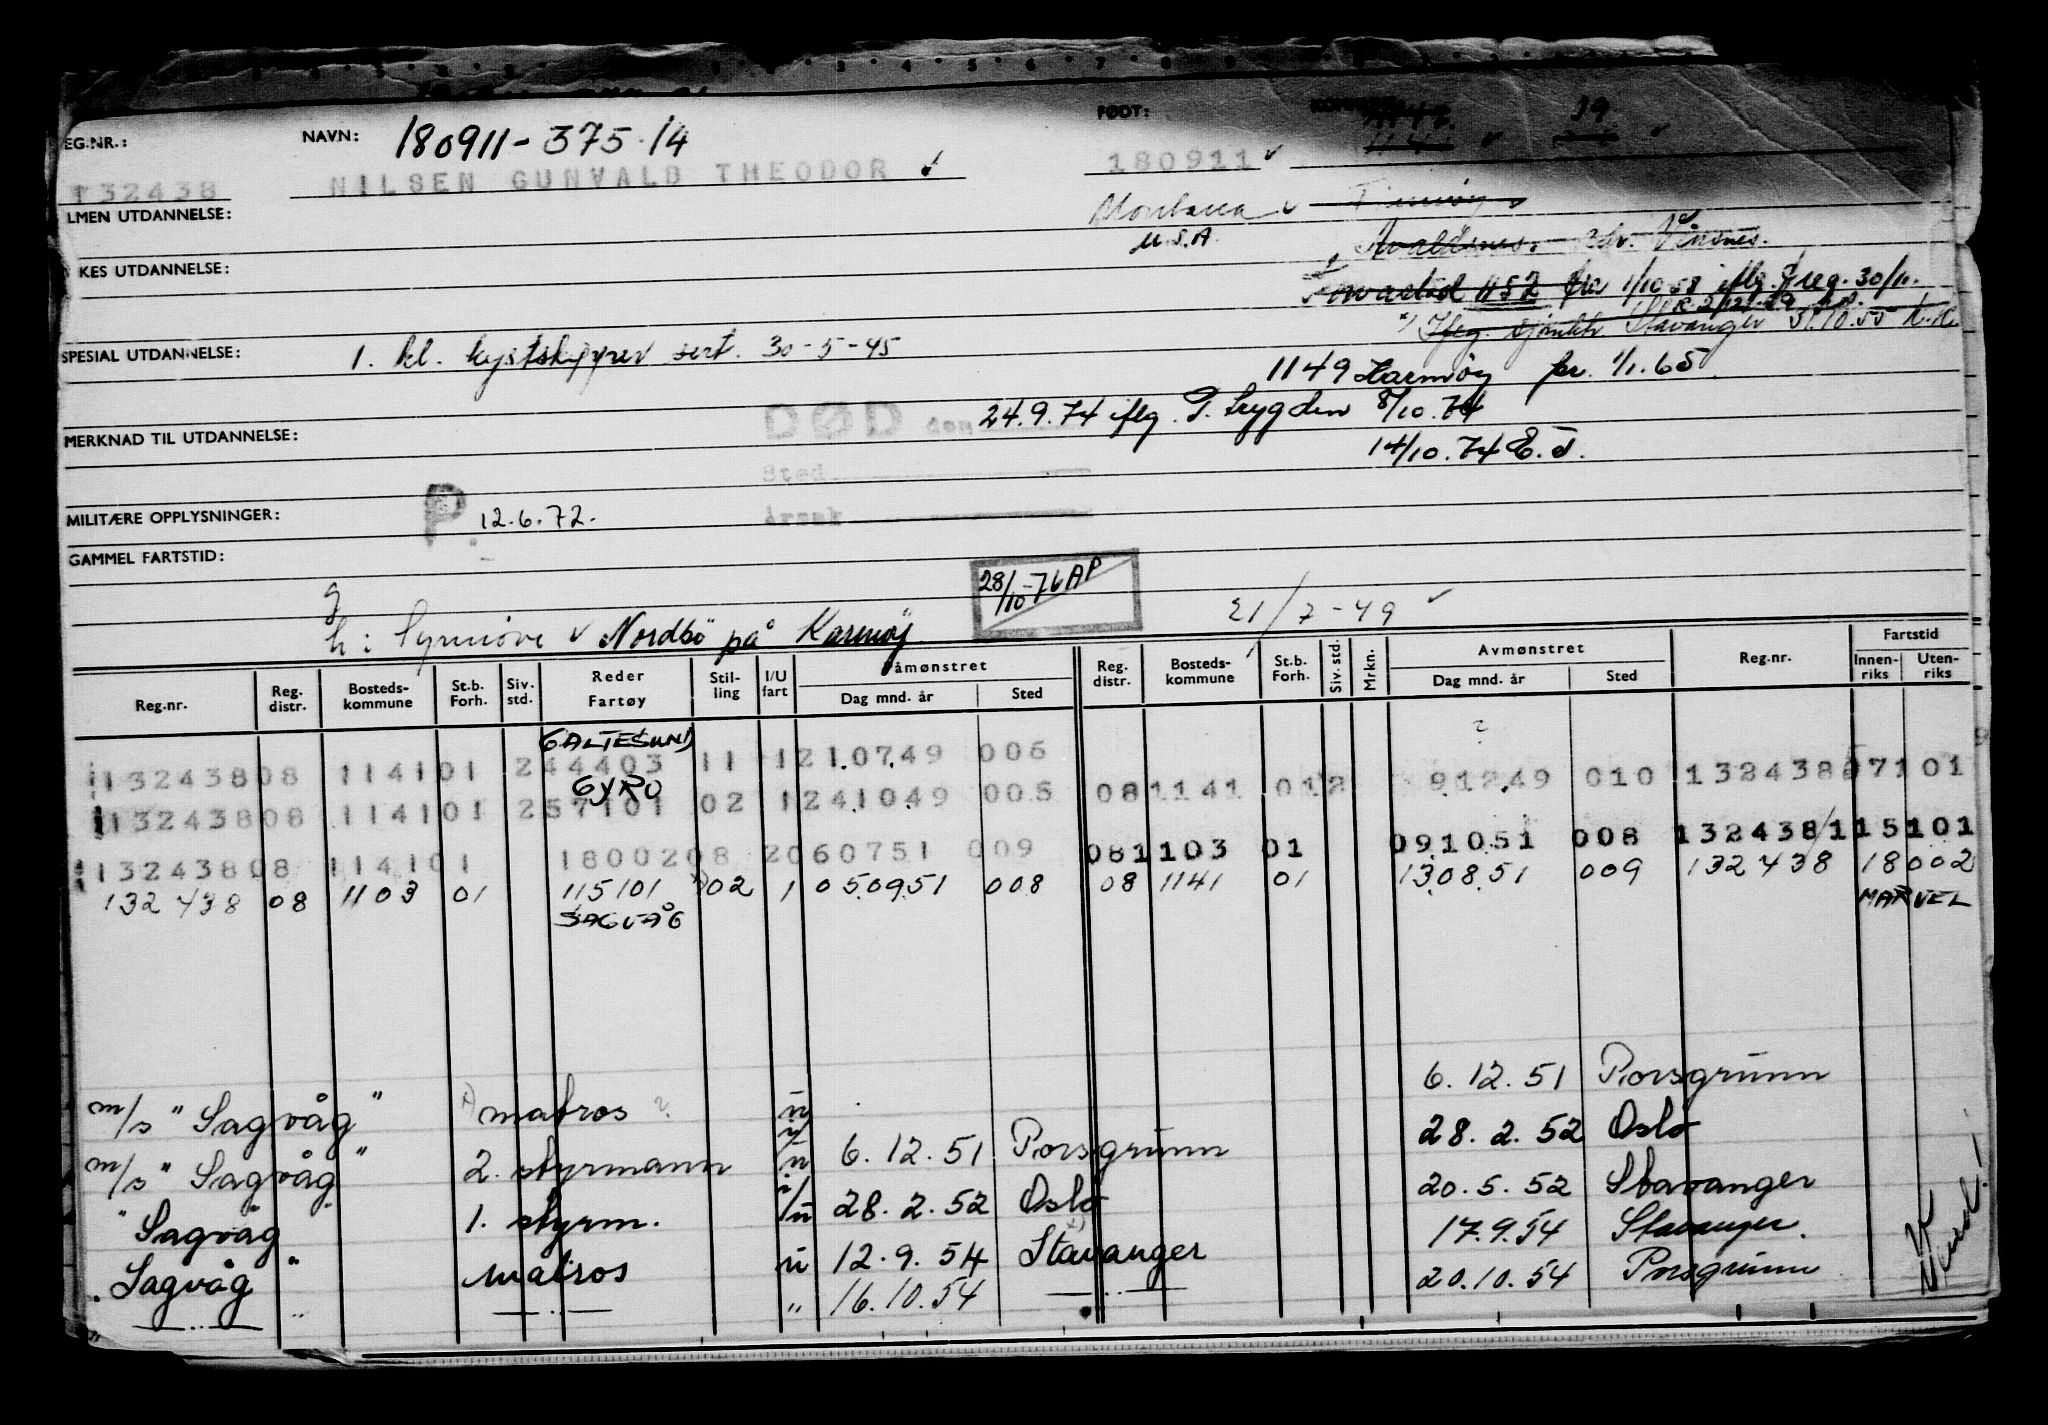 EG.NR.: NAVN: 180911-375.14 FØDT:
132438 NILSEN GUNVALD THEODOR 180911
LMEN UTDANNELSE: U.S.A.
KES UTDANNELSE: Vinsnes.
1152 fra 1/10 58 iflg. F reg. 30/11.
Stavanger 31.10.55
SPESIAL UTDANNELSE: 1. kl. kystskipper sert. 30-5-45
1149 Karmöy fr. 1/1.65
DØD den 24.9.74 iflg. P. trygden 8/10.74
MERKNAD TIL UTDANNELSE: 14/10.74 E.J.
Sted
MILITÆRE OPPLYSNINGER: P. 12.6.72. Årsak
GAMMEL FARTSTID:
28/10-76 AP
21/7-49
h: Nordbö på Karmöy
Reg.nr. Reg. distr. Bosteds- kommune St.b. Forh. Siv. std. Reder Fartøy Stil- ling I/U fart Påmønstret Dag mnd. år Sted Reg. distr. Bosteds- kommune St.b. Forh. Siv. std. Mrkn. Avmønstret Dag mnd. år Sted Reg.nr. Fartstid Innen- riks Uten- riks
GALTESUND
13243808 114101 244403 11 1210749 006
GYRO
13243808 114101 257101 02 1241049 005 081141 012 91249 010 132438 57101
13243808 114101 1800208 2060751 009 081103 01 091051 008 132438/115101
132438 08 1103 01 115101 02 1 050951 008 08 1141 01 130851 009 132438 18002
SAGVÅG MARVEL
m/s "Sagvåg" matros u 6.12.51 Porsgrunn
m/s "Sagvåg" 2. styrmann u 6.12.51 Porsgrunn 28.2.52 Oslo
"Sagvåg" 1. styrm. i/u 28.2.52 Oslo 20.5.52 Stavanger
"Sagvåg" matros u 12.9.54 Stavanger 17.9.54 Stavanger.
" —..— " —..— " 16.10.54 —..— 20.10.54 Porsgrunn